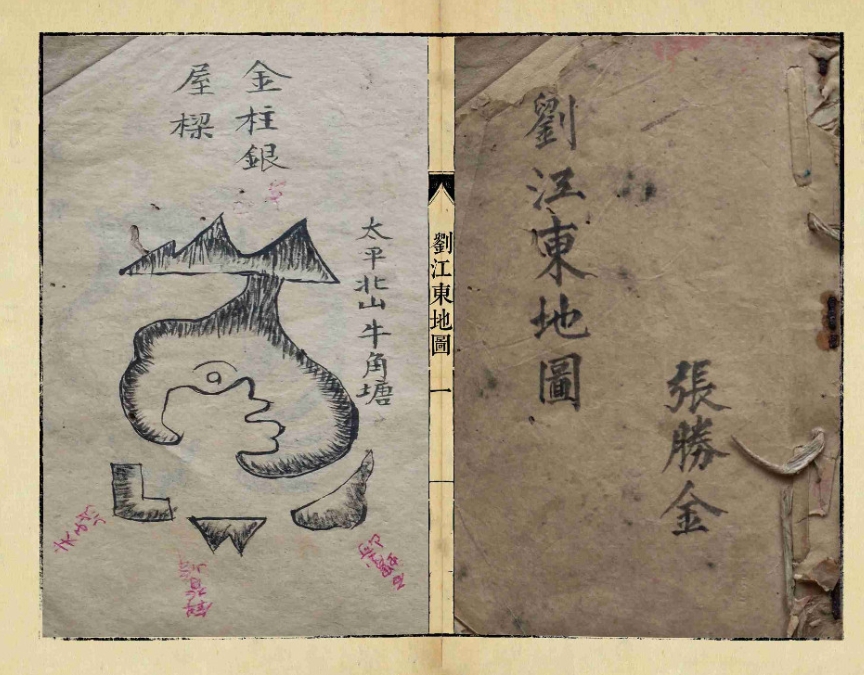 劉江東地圖
張勝金
劉江東地圖 一
太平北山牛角塘
金柱銀
屋樑